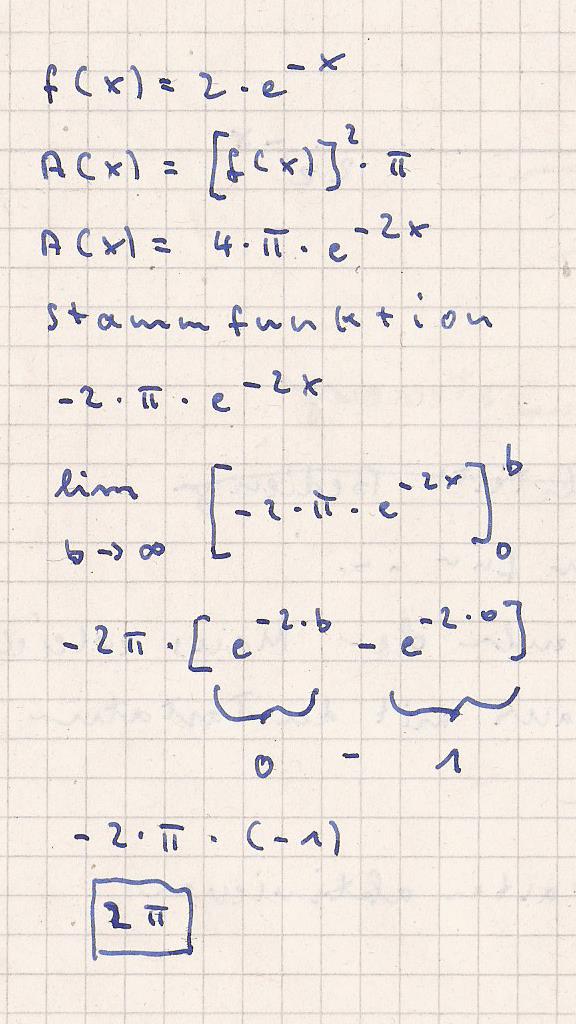 f(x) = 2 · e^-x
A(x) = [f(x)]^2 · π
A(x) = 4 · π · e^-2x
Stammfunktion
-2 · π · e^-2x
lim b→∞ [-2 · π · e^-2x]_0^b
-2π · [e^-2·b - e^-2·0]
0 - 1
-2 · π · (-1)
2 π